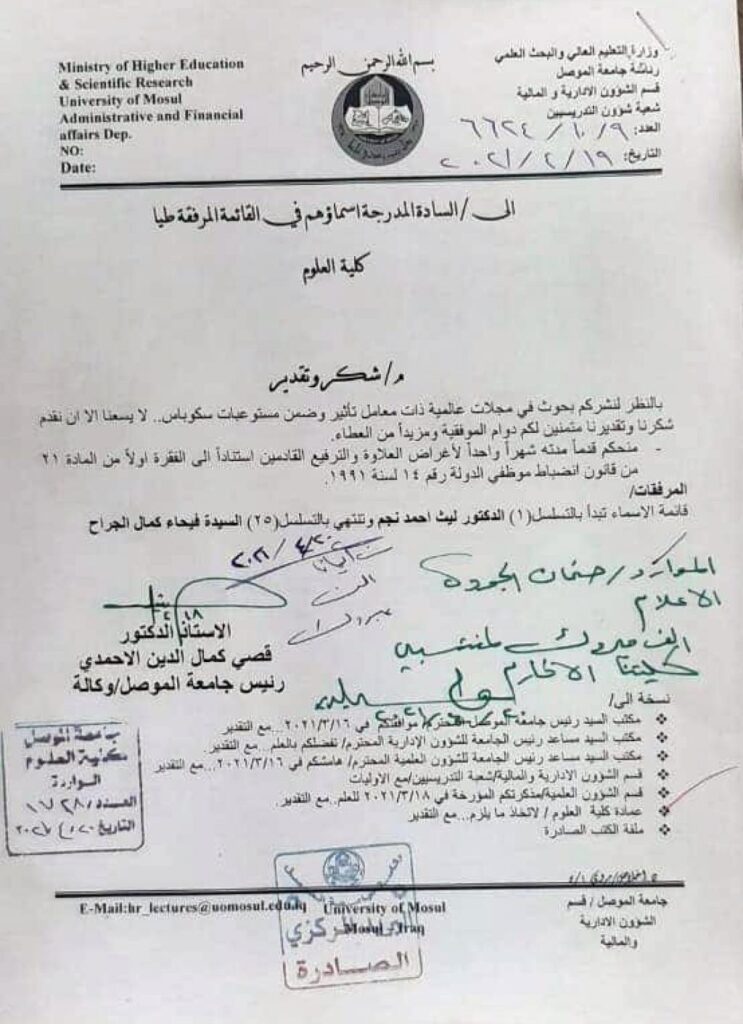 Ministry of Higher Education
& Scientific Research
University of Mosul
Administrative and Financial
affairs Dep.
NO:
Date:
بسم الله الرحمن الرحيم
وزارة التعليم العالي والبحث العلمي
رئاسة جامعة الموصل
قسم الشؤون الادارية و المالية
شعبة شؤون التدريسيين
العدد: ٦٦٢٤/١٠/٩
التاريخ:
الى/السادة المدرجة اسماؤهم في القائمة المرفقة طيا
كلية العلوم
م/شكر وتقدير
بالنظر لنشركم بحوث في مجلات عالمية ذات معامل تأثير وضمن مستوعبات سكوباس.. لا يسعنا الا ان نقدم
شكرنا وتقديرنا متمنين لكم دوام الموفقية ومزيداً من العطاء.
- منحكم قدماً مدته شهراً واحداً لأغراض العلاوة والترفيع القادمين استناداً الى الفقرة اولاً من المادة ٢١
من قانون انضباط موظفي الدولة رقم ١٤ لسنة ١٩٩١.
المرفقات/
قائمة الاسماء تبدأ بالتسلسل(١) الدكتور ليث احمد نجم وتنتهي بالتسلسل(٢٥) السيدة فيحاء كمال الجراح
٢٠٢١/٤/٢٠
الموارد/ضمان الجودة
الاعلام
الف مبروك لمنتسبي
كليتنا الاكارم
الف
مبروك
الاستاذ الدكتور
قصي كمال الدين الاحمدي
رئيس جامعة الموصل/وكالة
نسخة الى/
❖ مكتب السيد رئيس جامعة الموصل المحترم/ موافقتكم في ٢٠٢١/٣/١٦...مع التقدير
❖ مكتب السيد مساعد رئيس الجامعة للشؤون الإدارية المحترم/ تفضلكم بالعلم...مع التقدير.
❖ مكتب السيد مساعد رئيس الجامعة للشؤون العلمية المحترم/ هامشكم في ٢٠٢١/٣/١٦...مع التقدير
❖ قسم الشؤون الادارية والمالية/شعبة التدريسيين/مع الاوليات
❖ قسم الشؤون العلمية/مذكرتكم المؤرخة في ٢٠٢١/٣/١٨ للعلم..مع التقدير.
❖ عمادة كلية العلوم / لاتخاذ ما يلزم...مع التقدير
❖ ملفة الكتب الصادرة
جامعة الموصل
كلية العلوم
الواردة
العدد/
التاريخ
E-Mail:hr_lectures@uomosul.edu.iq
University of Mosul
Mosul - Iraq
جامعة الموصل / قسم
الشؤون الادارية
والمالية
المركزي
الصادرة